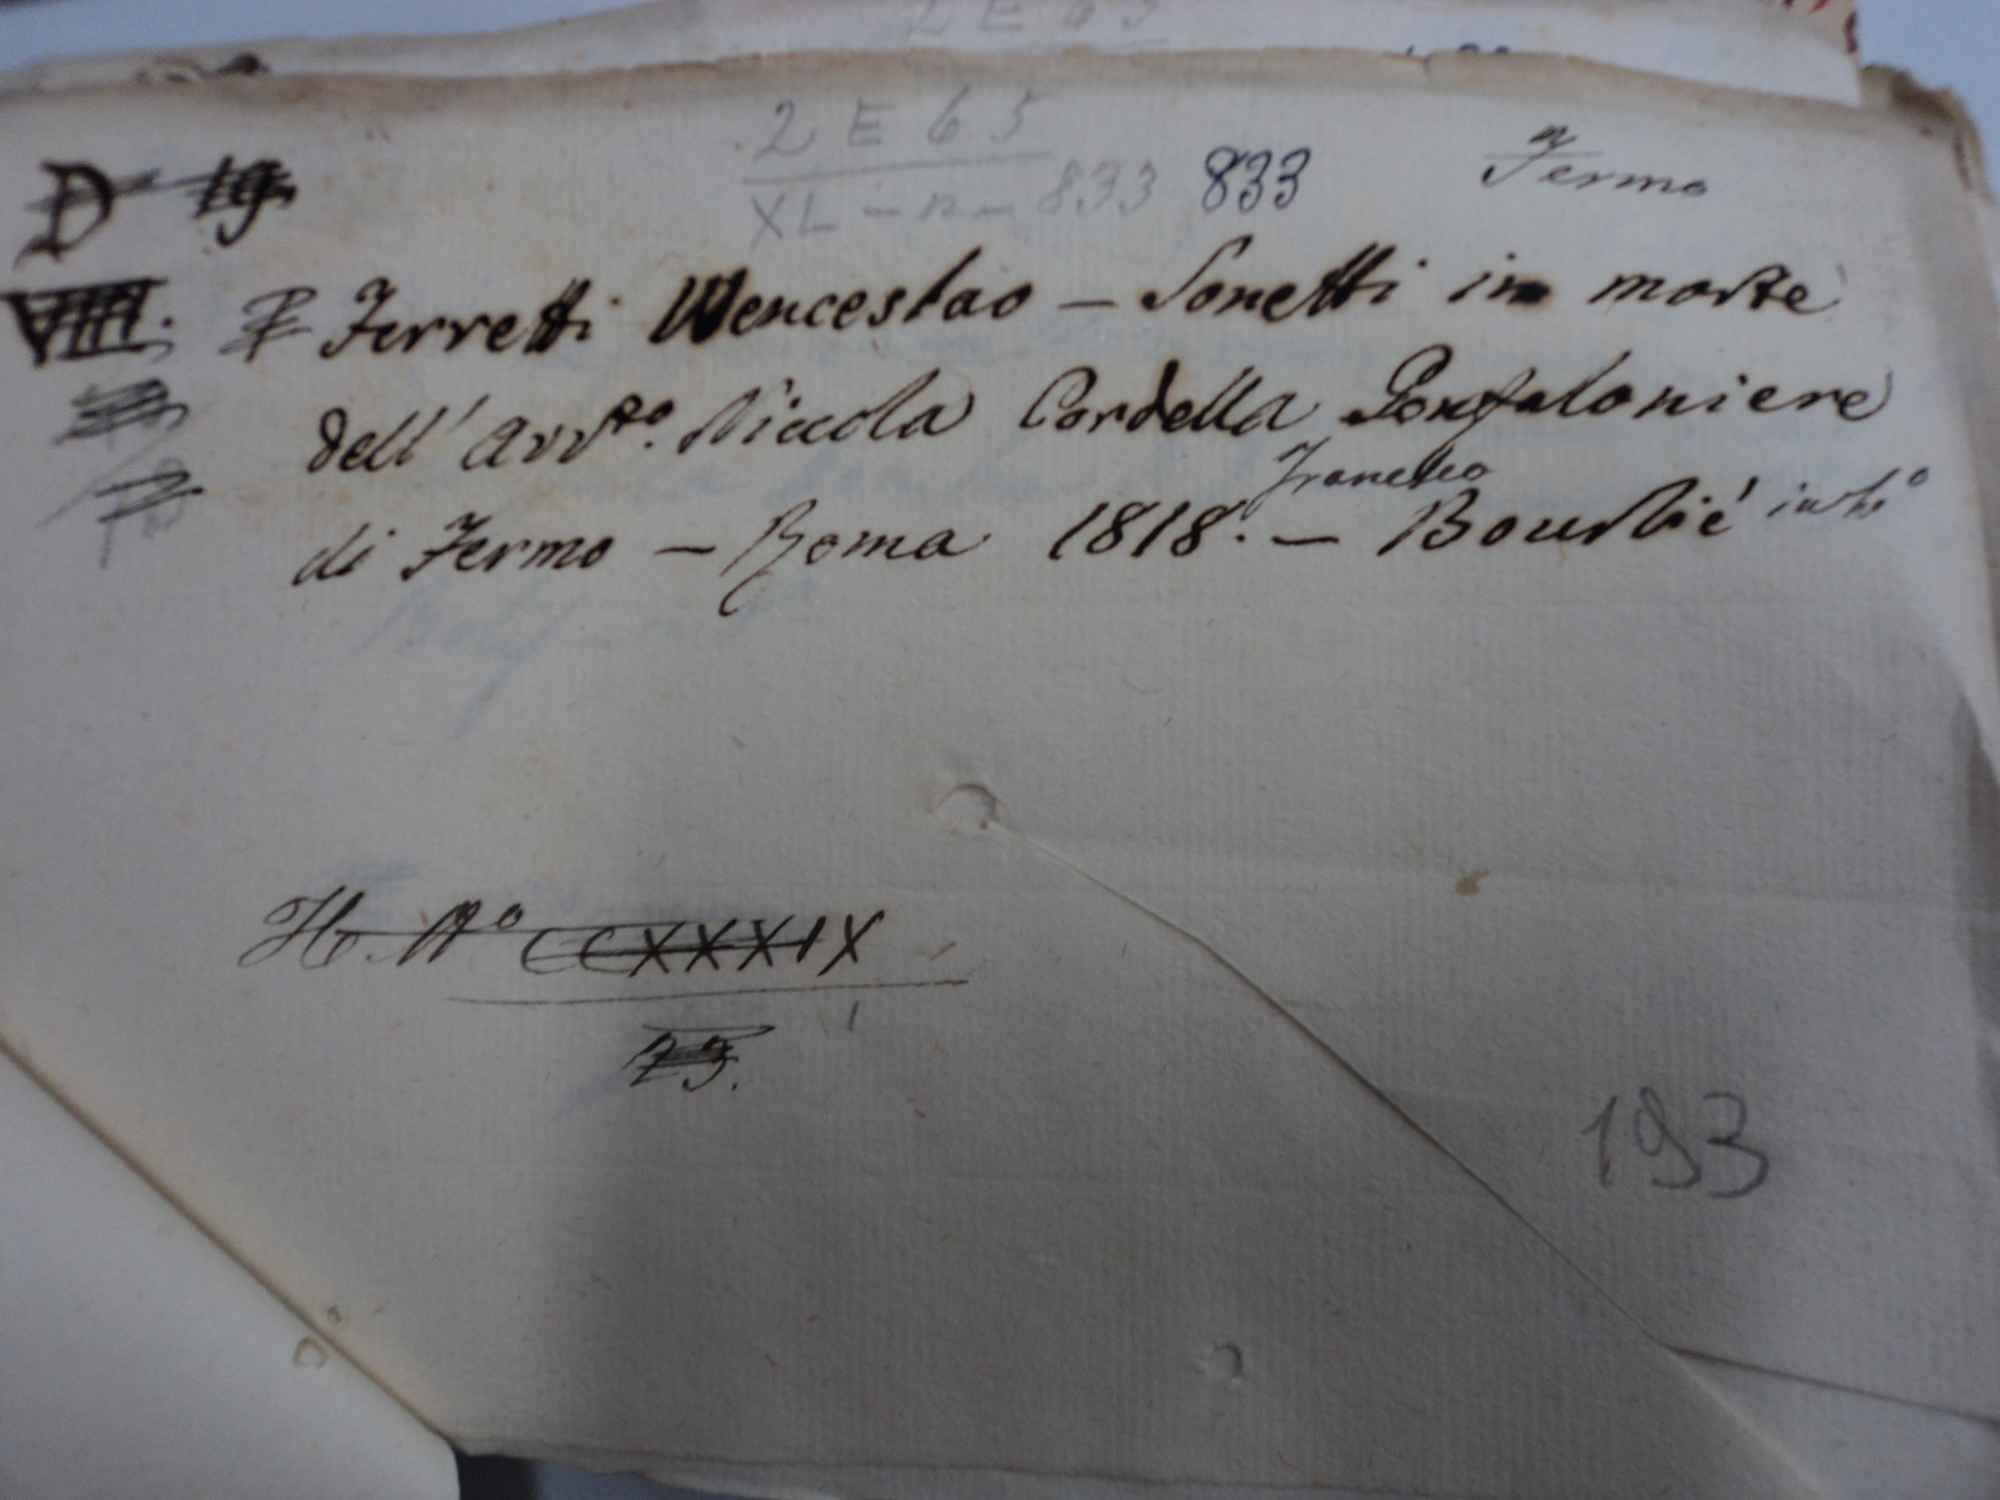 2 E 65
XL - n - 833 833
Fermo
D 19
VIIII.
Ferretti Wenceslao – Sonetti in morte
dell' Avv.to Niccola Cordella Gonfaloniere
di Fermo – Roma 1818. – Francesco Bourlié in 4o
H. No CCXXXIX
193